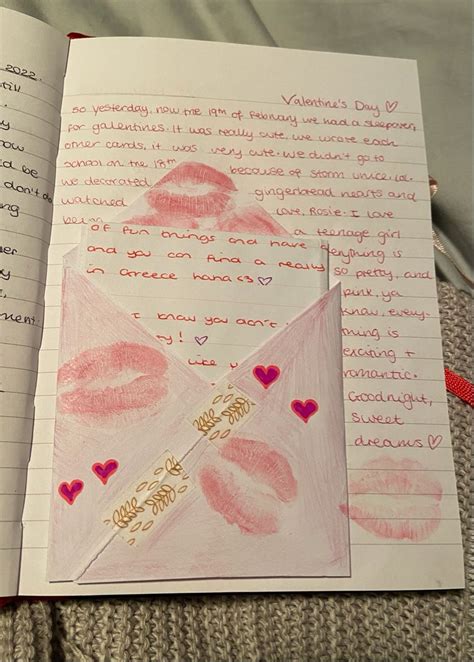 2022.
still
y
h
d be
don't do
er
y
nment.
Valentine's Day ♡
so yesterday, now the 19th of February we had a sleepover,
for galentines. It was really cute, we wrote each
other cards, it was very cute. We didn't go to
school on the 18th because of storm unice, lol.
we decorated gingerbread hearts and
watched Love, Rosie. I love
being a teenage girl
everything is
so pretty, and
pink, ya
know, every-
thing is
exciting +
romantic.
Goodnight,
sweet
dreams ♡
of fun things and have
and you can find a really
in Greece haha <3 ♡
I know you don't
y! ♡
like y